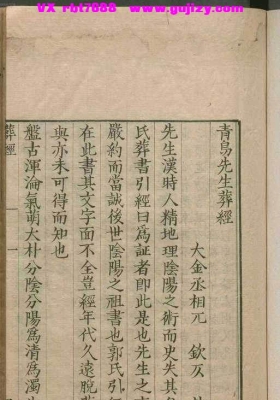 VX rbt7888  https://www.gujizy.com
青鳥先生葬經
大金丞相兀 欽仄
先生漢時人精地理陰陽之術而史失其
氏葬書引經曰為証者即此是也先生之
嚴約而當誠後世陰陽之祖書也郭氏引
在此書其文字面不全豈經年代久遠脫
與亦未可得而知也
盤古渾淪氣萌大朴分陰分陽為清為濁
葬經
一